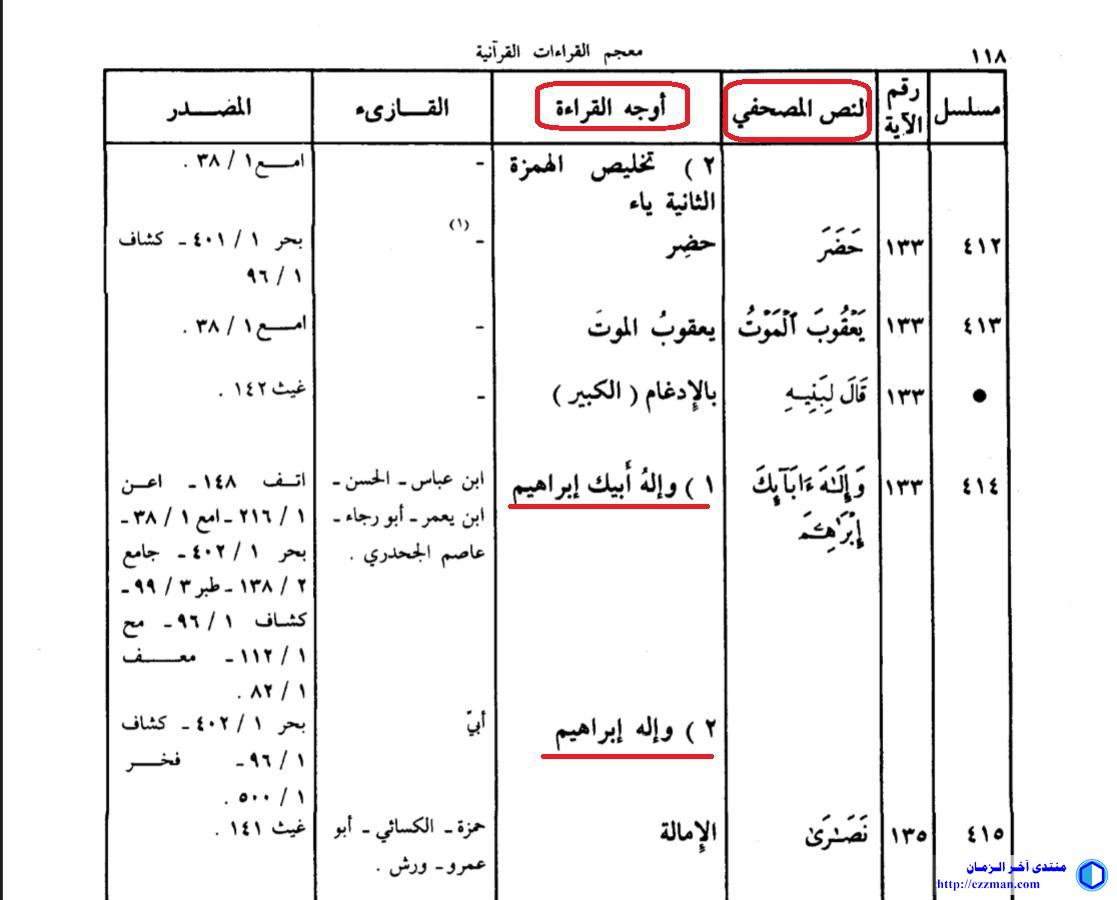 ١١٨ معجم القراءات القرآنية
مسلسل رقم الآية النص المصحفي أوجه القراءة القــارىء المصــدر
٢ ) تخليص الهمزة - امــع ١ / ٣٨ .
الثانية ياء
٤١٢ ١٣٣ حَضَرَ حضِر - (١) بحر ١ / ٤٠١ ـ كشاف
١ / ٩٦
٤١٣ ١٣٣ يَعْقُوبَ ٱلْمَوْتُ يعقوبُ الموتَ - امــع ١ / ٣٨ .
● ١٣٣ قَالَ لِبَنِيهِ بالإدغام ( الكبير ) - غيث ١٤٢ .
٤١٤ ١٣٣ وَإِلَٰهَ ءَابَآئِكَ ١ ) وإلهُ أَبيك إبراهيم ابن عباس ـ الحسن ـ اتــف ١٤٨ ـ اعــن
إِبْرَٰهِـۧمَ ابن يعمر ـ أبو رجاء ـ ١ / ٢١٦ ـ امع ١ / ٣٨ ـ
عاصم الجحدري . بحر ١ / ٤٠٢ ـ جامع
٢ / ١٣٨ ـ طبر ٣ / ٩٩ ـ
كشاف ١ / ٩٦ ـ مح
١ / ١١٢ ـ معــف
١ / ٨٢ .
٢ ) وإله إبراهيم أبيّ بحر ١ / ٤٠٢ ـ كشاف
١ / ٩٦ ـ فخــر
١ / ٥٠٠ .
٤١٥ ١٣٥ نَصَٰرَىٰ الإمالة حمزة ـ الكسائي ـ أبو غيث ١٤١ .
عمرو ـ ورش .
منتدى آخر الـزمـان
http://ezzman.com